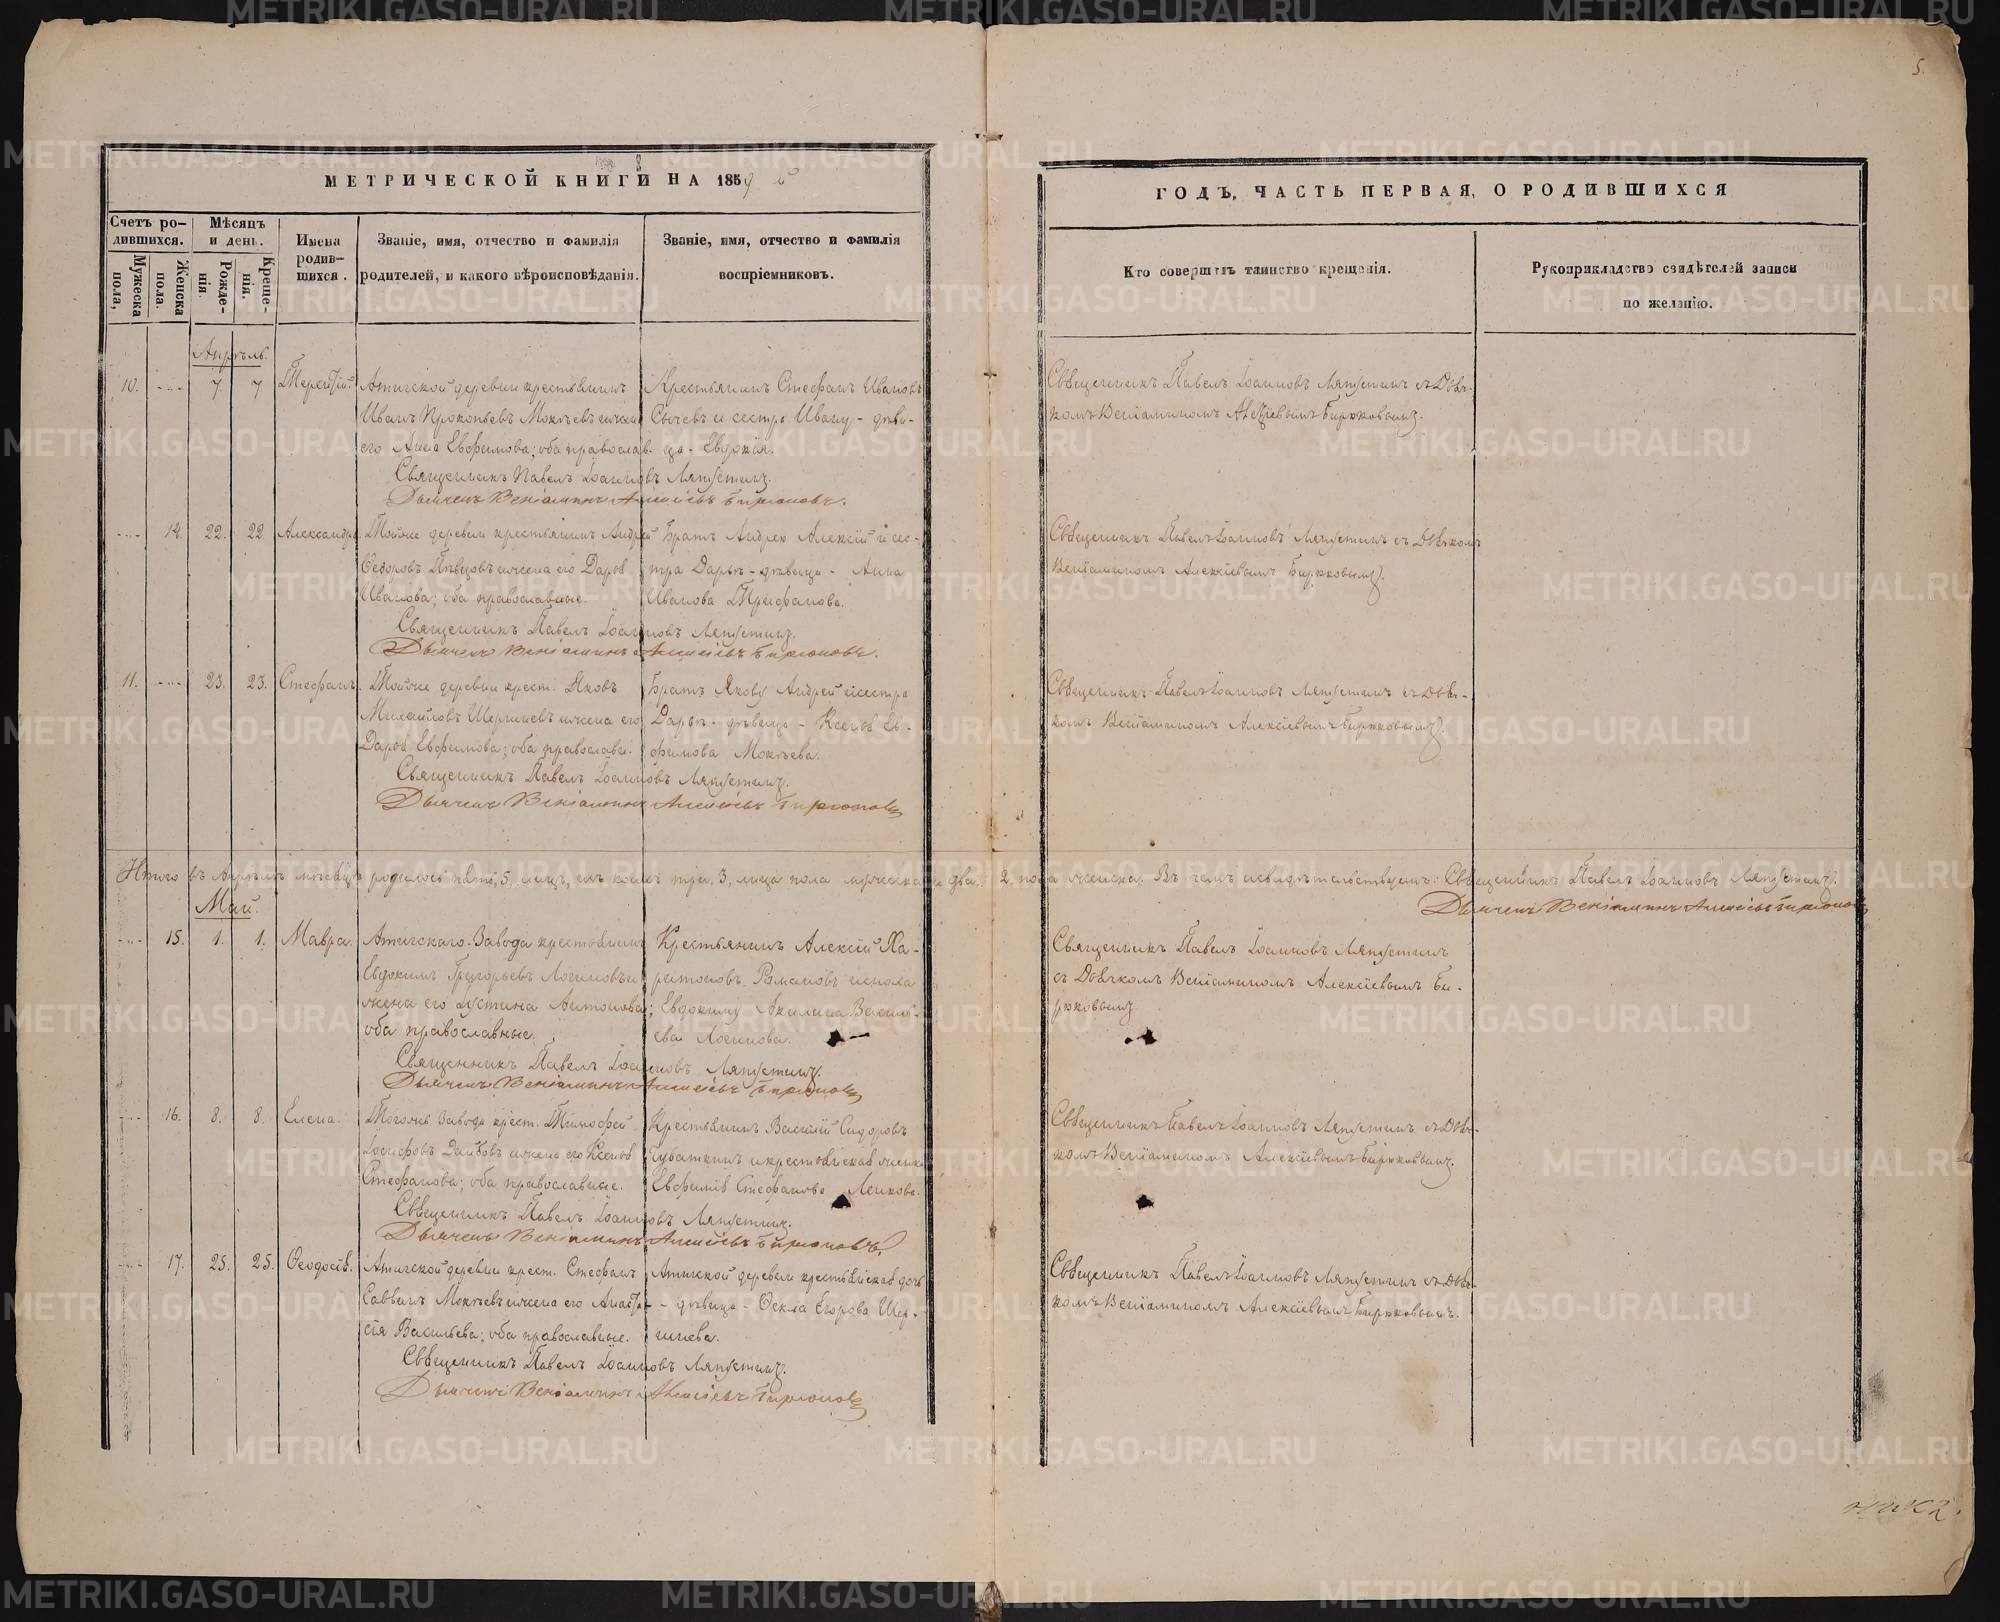 5.
МЕТРИЧЕСКОЙ КНИГИ НА 1859 й
ГОДЪ, ЧАСТЬ ПЕРВАЯ, О РОДИВШИХСЯ
Счетъ ро-
дившихся.
Мужеска пола,
Женска пола.
Мѣсяцъ
и день.
Рожде-
нія.
Креще-
нія.
Имена
родив-
шихся.
Званіе, имя, отчество и фамилія
родителей, и какого вѣроисповѣданія.
Званіе, имя, отчество и фамилія
воспріемниковъ.
Кто совершилъ таинство крещенія.
Рукоприкладство свидѣтелей записи
по желанію.
Апрѣль.
10. 7 7 Терентій.
Атигской деревни крестьянинъ
Иванъ Прокопьевъ Мокѣевъ и жена
его Анна Евфимова; оба православ.
Крестьянинъ Стефанъ Ивановъ
Сычевъ и сестра Ивану - дѣви-
ца - Евдокія.
Священникъ Павелъ Іоанновъ Ляпустинъ.
Дьячекъ Веніаминъ Алексѣевъ Бирюковъ.
Священникъ Павелъ Іоанновъ Ляпустинъ съ Дьяч-
комъ Веніаминомъ Алексіевымъ Бирюковымъ.
14. 22. 22 Александра
Тойже деревни крестьянинъ Андрей
Ѳедоровъ Пѣвцовъ и жена его Дарья
Иванова; оба православные.
Братъ Андрею Алексій и сес-
тра Дарьѣ - дѣвица - Анна
Иванова Трифанова.
Священникъ Павелъ Іоанновъ Ляпустинъ.
Дьячекъ Веніаминъ Алексѣевъ Бирюковъ.
Священникъ Павелъ Іоанновъ Ляпустинъ съ Дьячкомъ
Веніаминомъ Алексіевымъ Бирюковымъ.
11. 23. 23. Стефанъ.
Тойже деревни крест. Яковъ
Михайловъ Шершневъ и жена его
Дарья Евфимова; оба православн.
Братъ Якову Андрей и сестра
Дарьѣ - дѣвица - Ксенья Ев-
фимова Мокѣева.
Священникъ Павелъ Іоанновъ Ляпустинъ.
Дьячекъ Веніаминъ Алексѣевъ Бирюковъ
Священникъ Павелъ Іоанновъ Ляпустинъ съ Дьяч-
комъ Веніаминомъ Алексіевымъ Бирюковымъ.
Итого въ Апрѣлѣ мѣсяцѣ родилось пять, 5, лицъ, изъ коихъ три, 3, лица пола мужеска и два, 2, пола женска. Въ чемъ и свидѣтельствуемъ: Священникъ Павелъ Іоанновъ Ляпустинъ.
Дьячекъ Веніаминъ Алексѣевъ Бирюковъ
Май.
15. 1. 1. Мавра.
Атигскаго Завода крестьянинъ
Евдокимъ Григорьевъ Логиновъ и
жена его Іустина Антонова;
оба православные.
Крестьянинъ Алексій Ха-
ритоновъ Романовъ и сноха
Евдокиму Акилина Василь-
ева Логинова.
Священникъ Павелъ Іоанновъ Ляпустинъ.
Дьячекъ Веніаминъ Алексѣевъ Бирюковъ
Священникъ Павелъ Іоанновъ Ляпустинъ
съ Дьячкомъ Веніаминомъ Алексіевымъ Би-
рюковымъ
16. 8. 8. Елена.
Тогоже Завода крест. Тимофей
Іосифовъ и жена его Ксенья
Стефанова; оба православные.
Крестьянинъ Василій Сидоровъ
и крестьянская женка
Евфимія Стефанова
Священникъ Павелъ Іоанновъ Ляпустинъ.
Дьячекъ Веніаминъ Алексѣевъ Бирюковъ.
Священникъ Павелъ Іоанновъ Ляпустинъ съ Дьяч-
комъ Веніаминомъ Алексіевымъ Бирюковымъ.
17. 25. 25. Ѳеодосія.
Атигской деревни крест. Стефанъ
Саввинъ Мокѣевъ и жена его Анаста-
сія Васильева; оба православные.
Атигской деревни крестьянская дочь
- дѣвица - Ѳекла Егорова Шер-
шнева.
Священникъ Павелъ Іоанновъ Ляпустинъ.
Дьячекъ Веніаминъ Алексѣевъ Бирюковъ
Священникъ Павелъ Іоанновъ Ляпустинъ съ Дьяч-
комъ Веніаминомъ Алексіевымъ Бирюковымъ.
METRIKI.GASO-URAL.RU